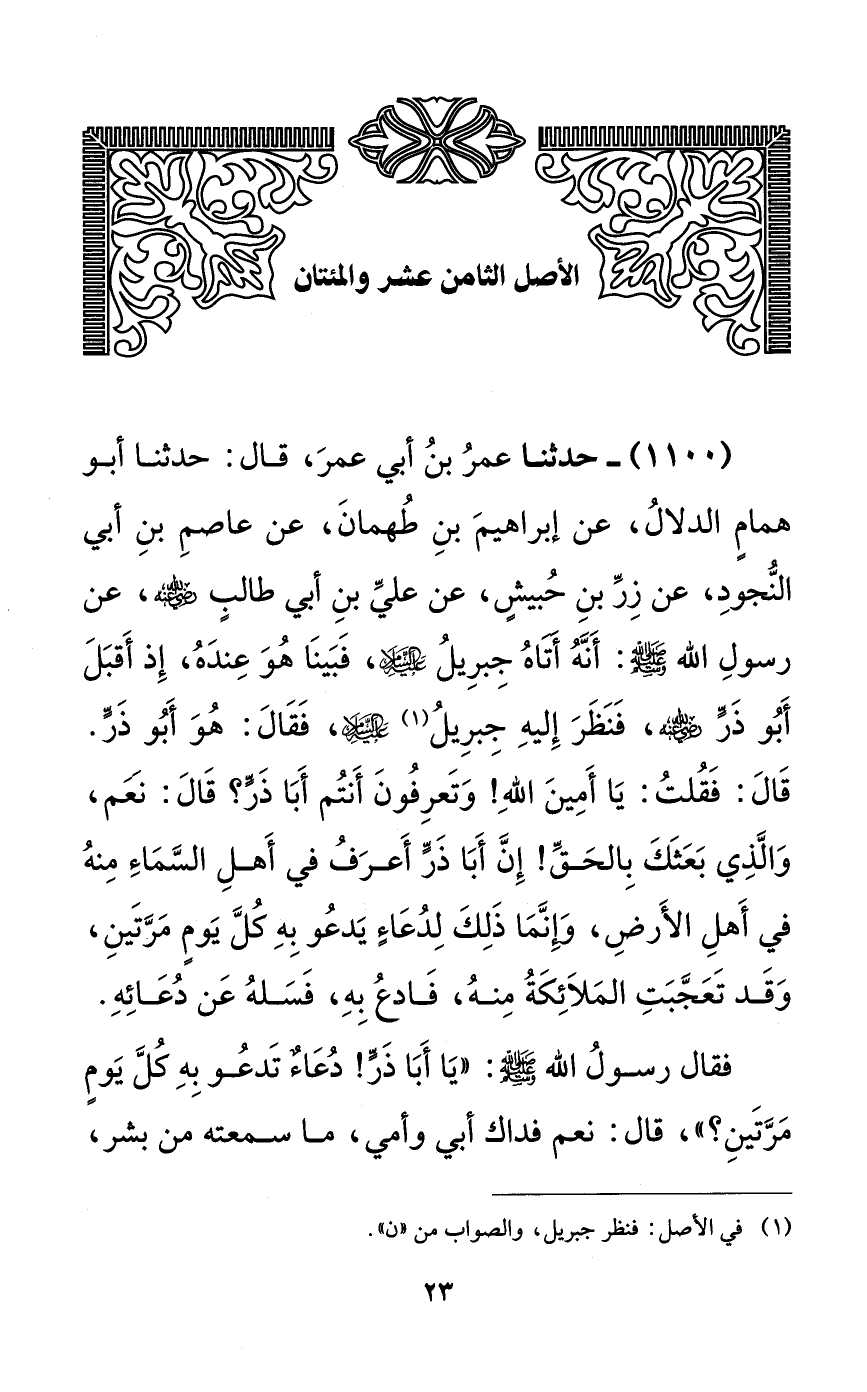 الأصل الثامن عشر والمئتان
(١١٠٠) ـ حدثنـا عمرُ بنُ أبي عمرَ، قـال: حدثنـا أبـو
همامٍ الدلالُ، عن إبراهيمَ بنِ طُهمانَ، عن عاصمِ بنِ أبي
النُّجودِ، عن زِرِّ بنِ حُبيشٍ، عن عليِّ بنِ أبي طالبٍ رضي الله عنه، عن
رسولِ الله ﷺ: أَنَّهُ أَتَاهُ جِبرِيلُ عليه السلام، فَبَينَا هُوَ عِندَهُ، إِذ أَقبَلَ
أَبُو ذَرٍّ رضي الله عنه، فَنَظَرَ إِليهِ جِبرِيلُ(١) عليه السلام، فَقَالَ: هُوَ أَبُو ذَرٍّ.
قَالَ: فَقُلتُ: يَا أَمِينَ اللهِ! وَتَعرِفُونَ أَنتُم أَبَا ذَرٍّ؟ قَالَ: نَعَم،
وَالَّذِي بَعَثَكَ بِالحَـقِّ! إِنَّ أَبَا ذَرٍّ أَعـرَفُ في أَهـلِ السَّمَاءِ مِنهُ
في أَهلِ الأَرضِ، وَإِنَّمَا ذَلِكَ لِدُعَاءٍ يَدعُو بِهِ كُلَّ يَومٍ مَرَّتَينِ،
وَقَـد تَعَجَّبَتِ المَلاَئِكَةُ مِنـهُ، فَـادعُ بِهِ، فَسَـلهُ عَن دُعَـائِهِ.
فقال رسـولُ الله ﷺ: «يَا أَبَا ذَرٍّ! دُعَاءٌ تَدعُـو بِهِ كُلَّ يَومٍ
مَرَّتَينِ؟»، قال: نعم فداك أبي وأمي، مـا سـمعته من بشر،
(١) في الأصل: فنظر جبريل، والصواب من «ن».
٢٣